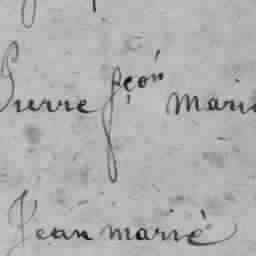 Pierre fçon marié
Jean marié